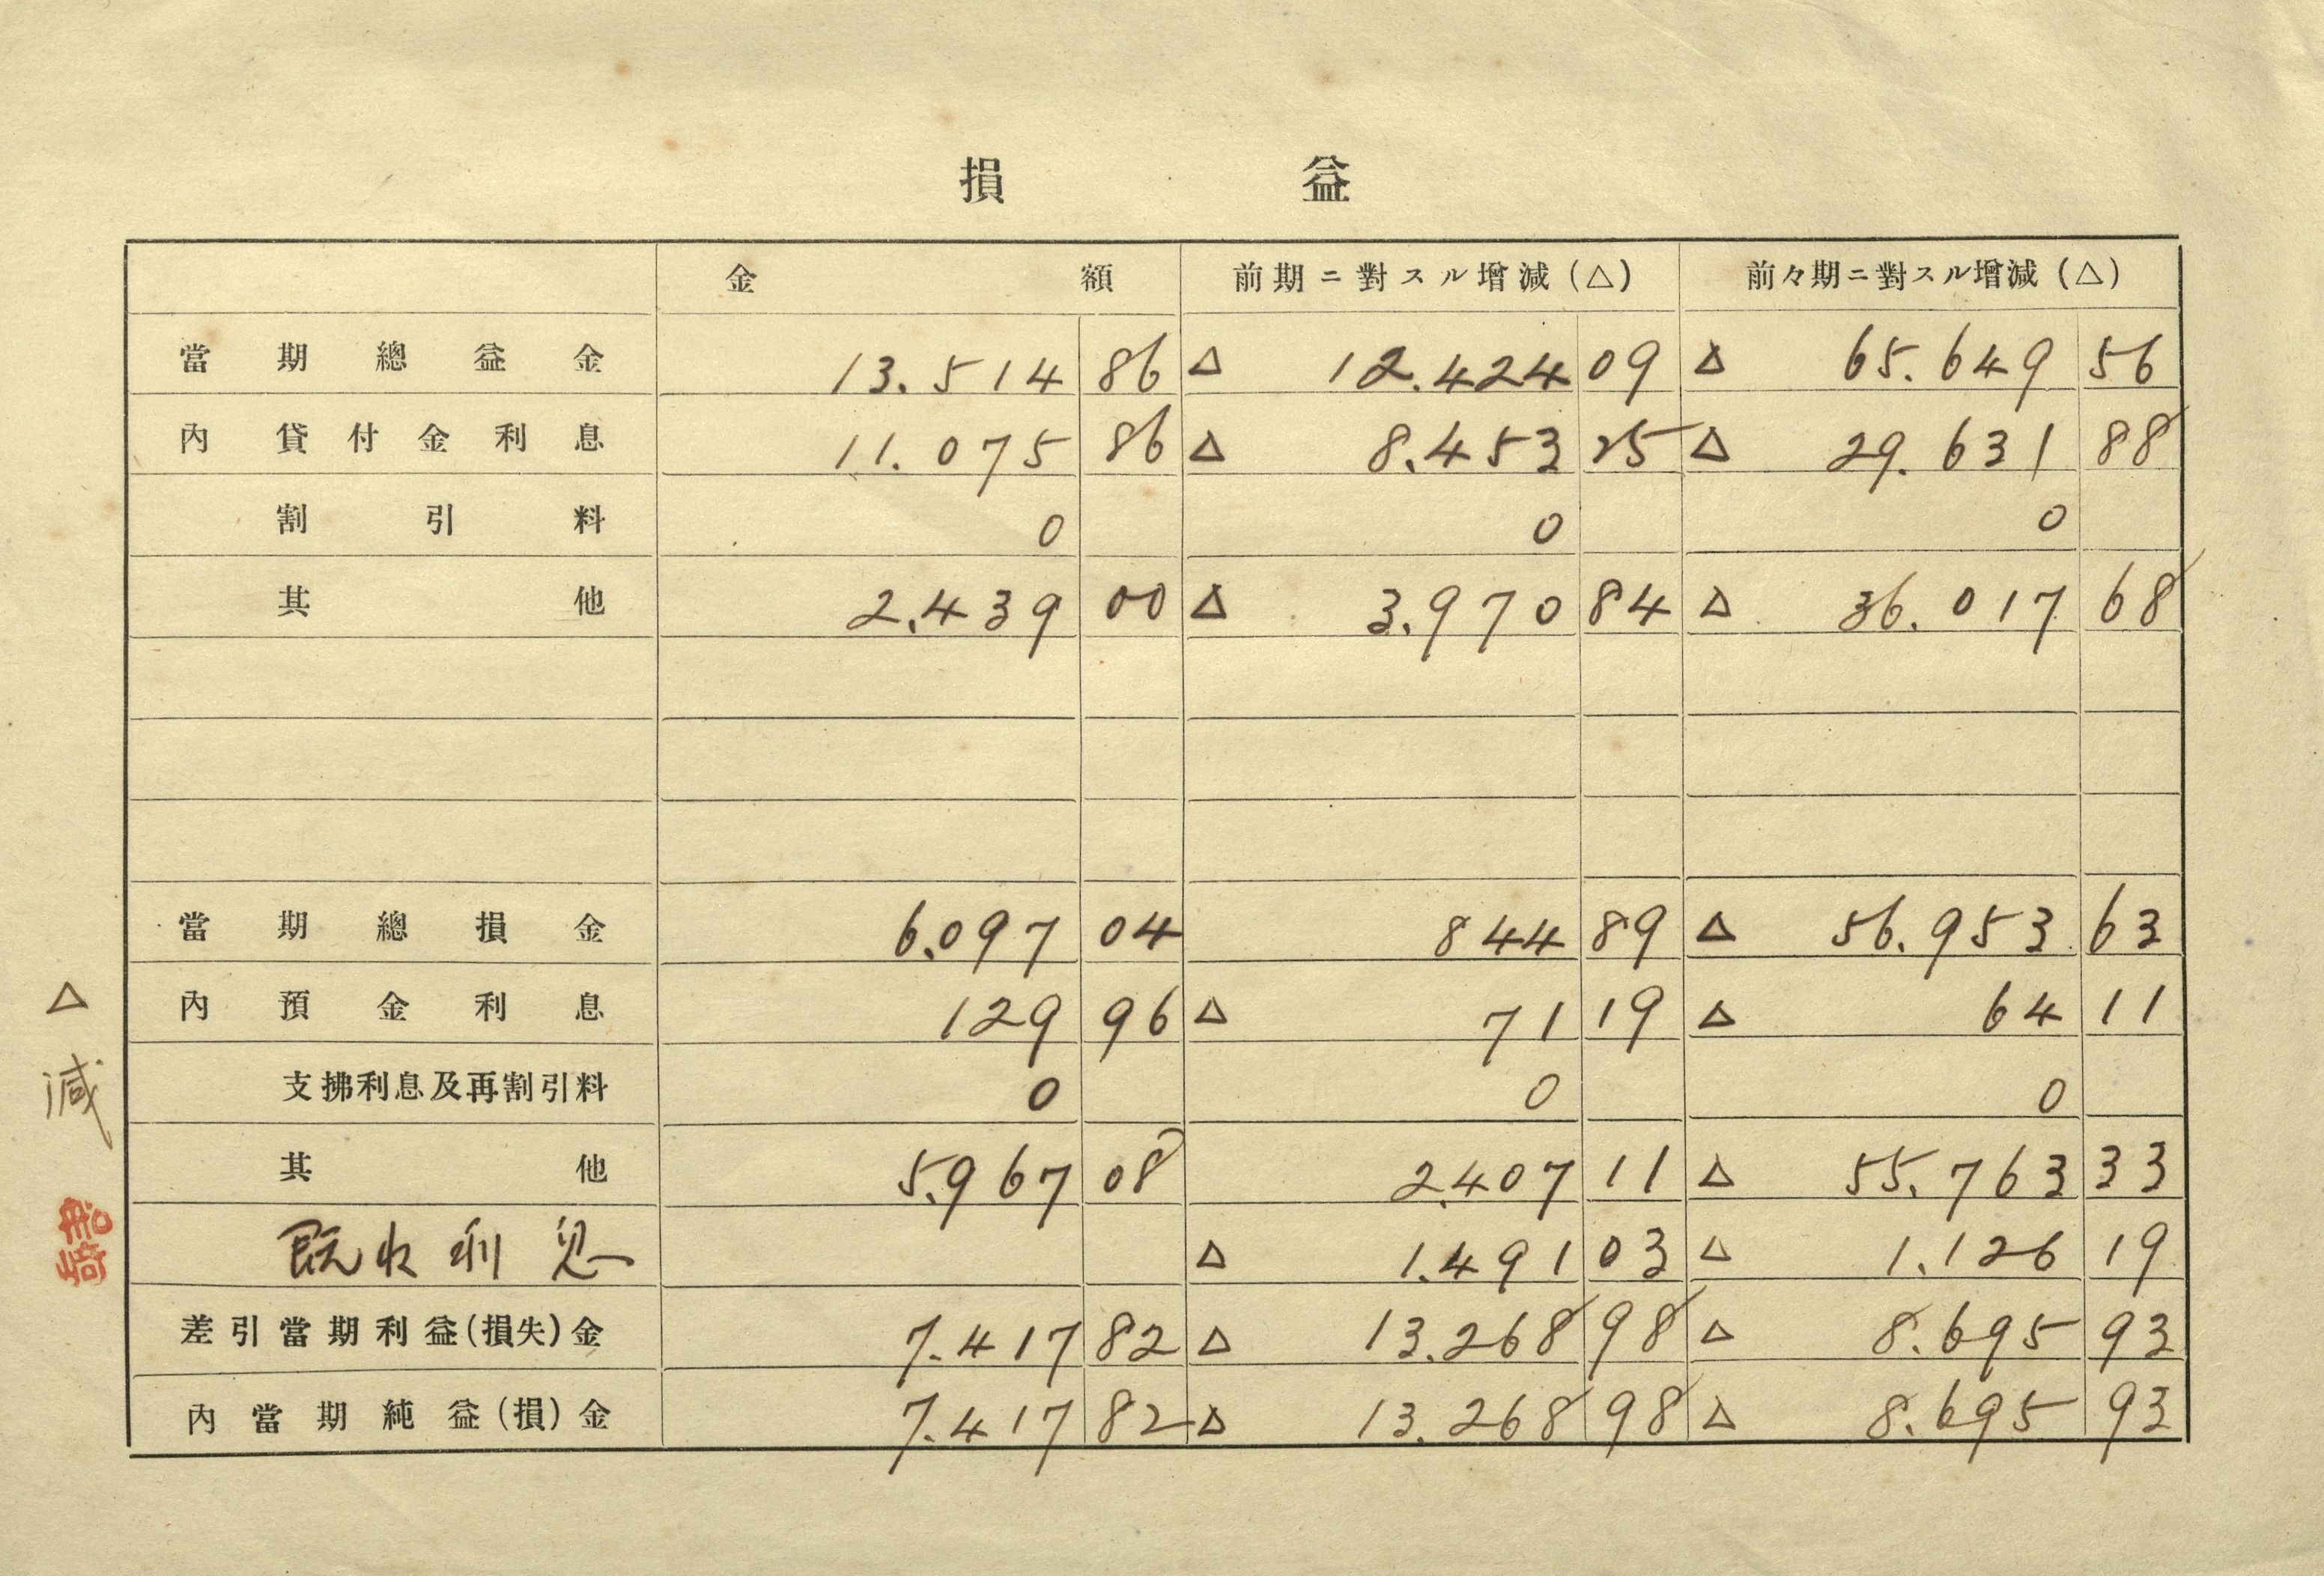 損益
金額 前期ニ對スル增減(△) 前々期ニ對スル增減(△)
當期總益金 13.514 86 △ 12.424 09 △ 65.649 56
內貸付金利息 11.075 86 △ 8.453 25 △ 29.631 88
割引料 0 0 0
其他 2.439 00 △ 3.970 84 △ 36.017 68
當期總損金 6.097 04 844 89 △ 56.953 63
內預金利息 129 96 △ 71 19 △ 64 11
支拂利息及再割引料 0 0 0
其他 5.967 08 2.407 11 △ 55.763 33
既收利息 △ 1.491 03 △ 1.126 19
差引當期利益(損失)金 7.417 82 △ 13.268 98 △ 8.695 93
內當期純益(損)金 7.417 82 △ 13.268 98 △ 8.695 93
△減